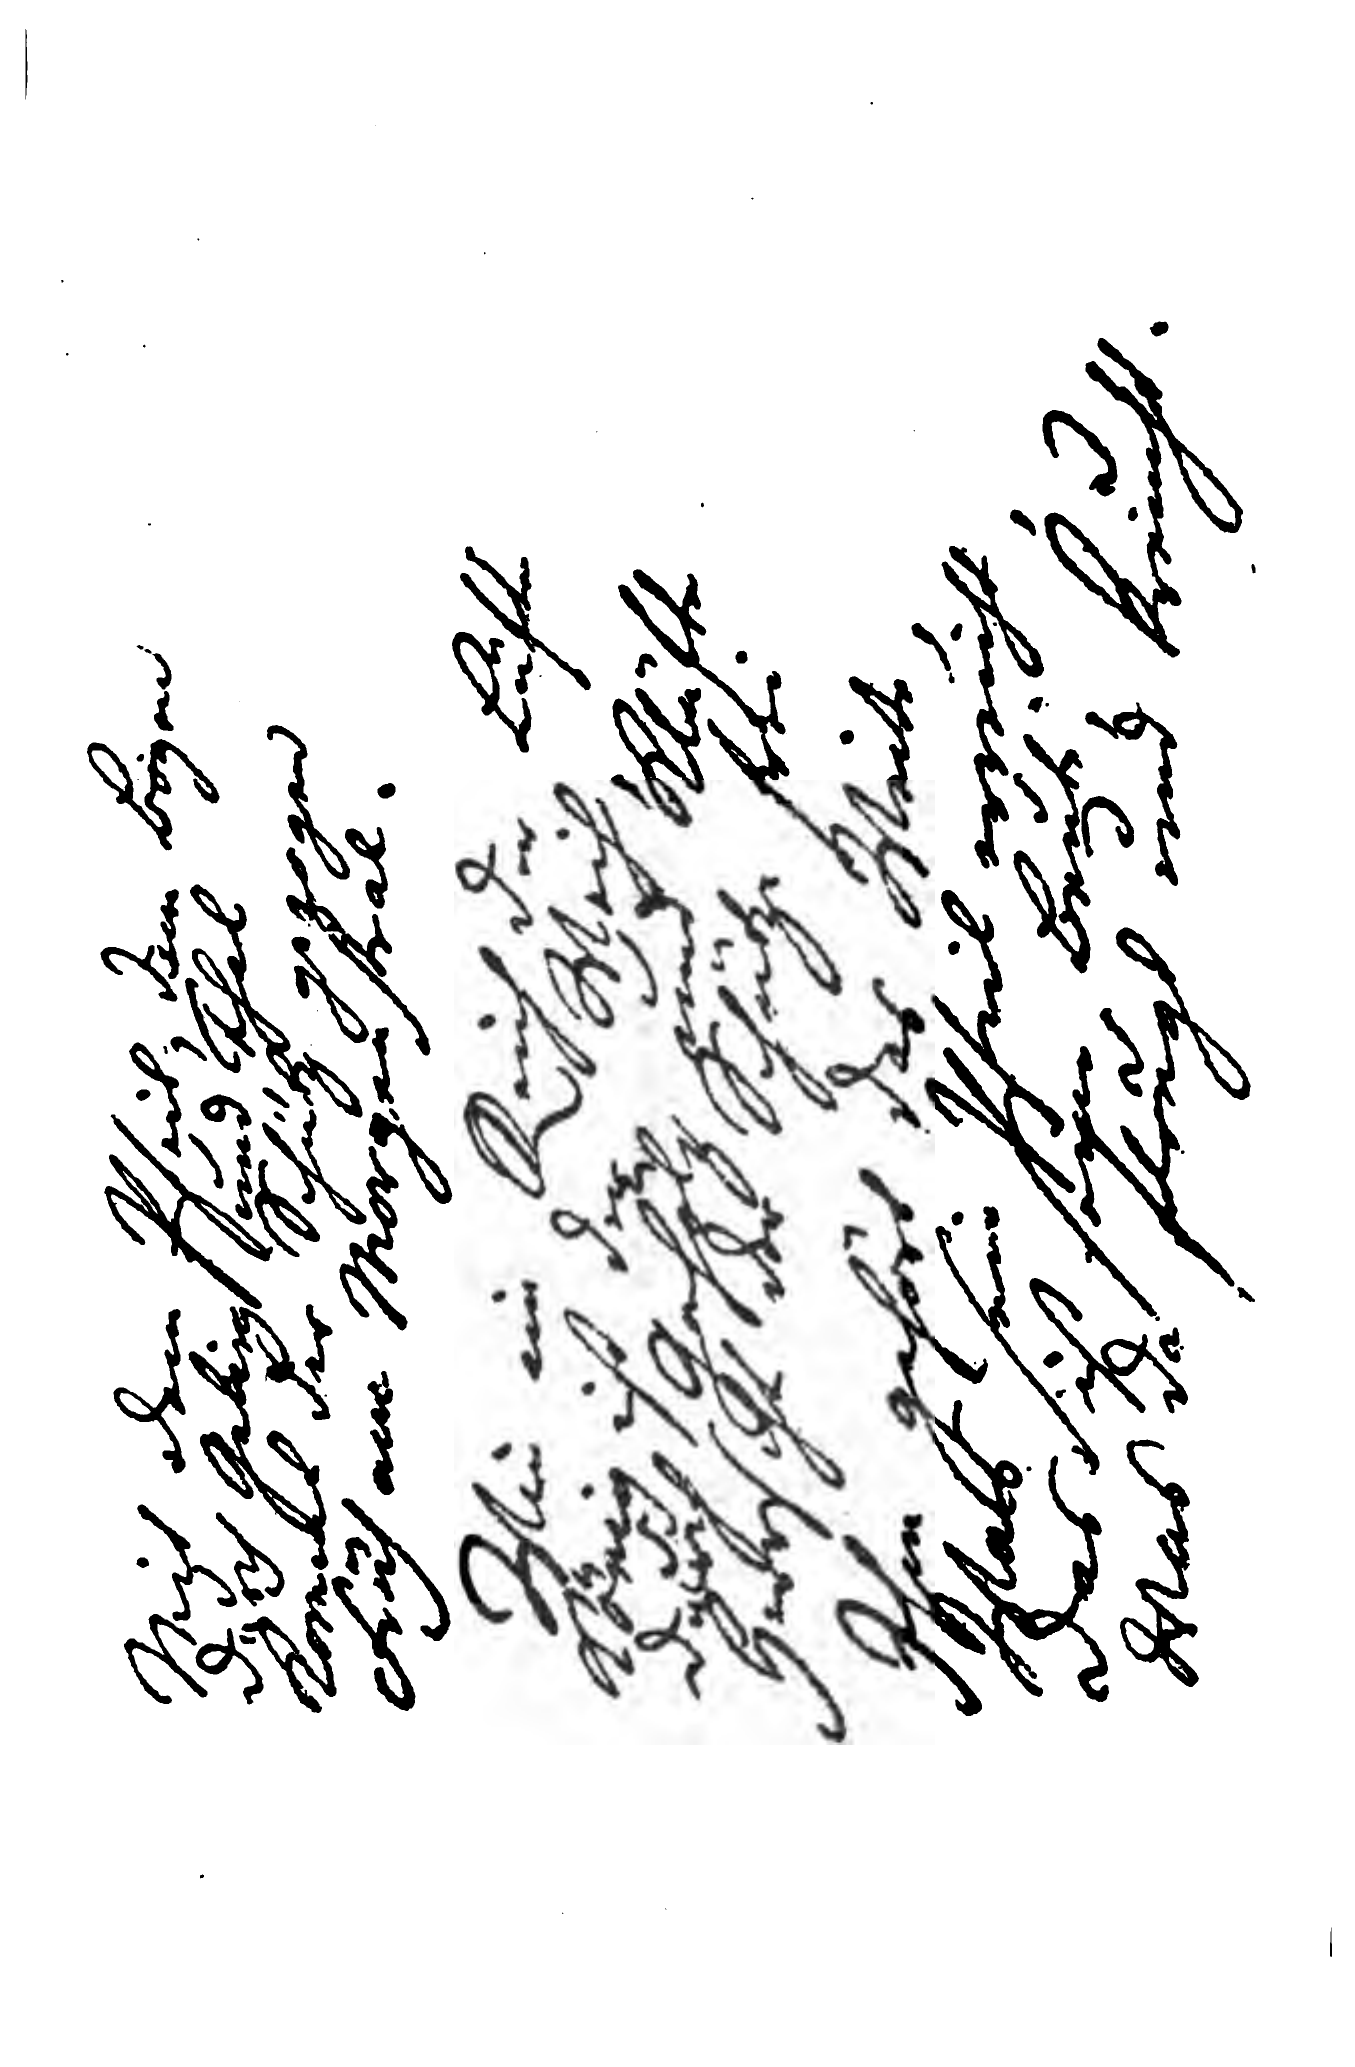 Mit dem Pfeil, dem Bogen
Durch Gebirg und Thal
Kommt der Schütz gezogen
Früh am Morgenstrahl.
Wie im Reich der Lüfte
König ist der Weih
Durch und Klüfte
Herrscht der Schütze frei.
Ihm gehört das Weite
Was sein Pfeil erreicht,
Das ist seine Beute,
Was da fleugt und kreucht.